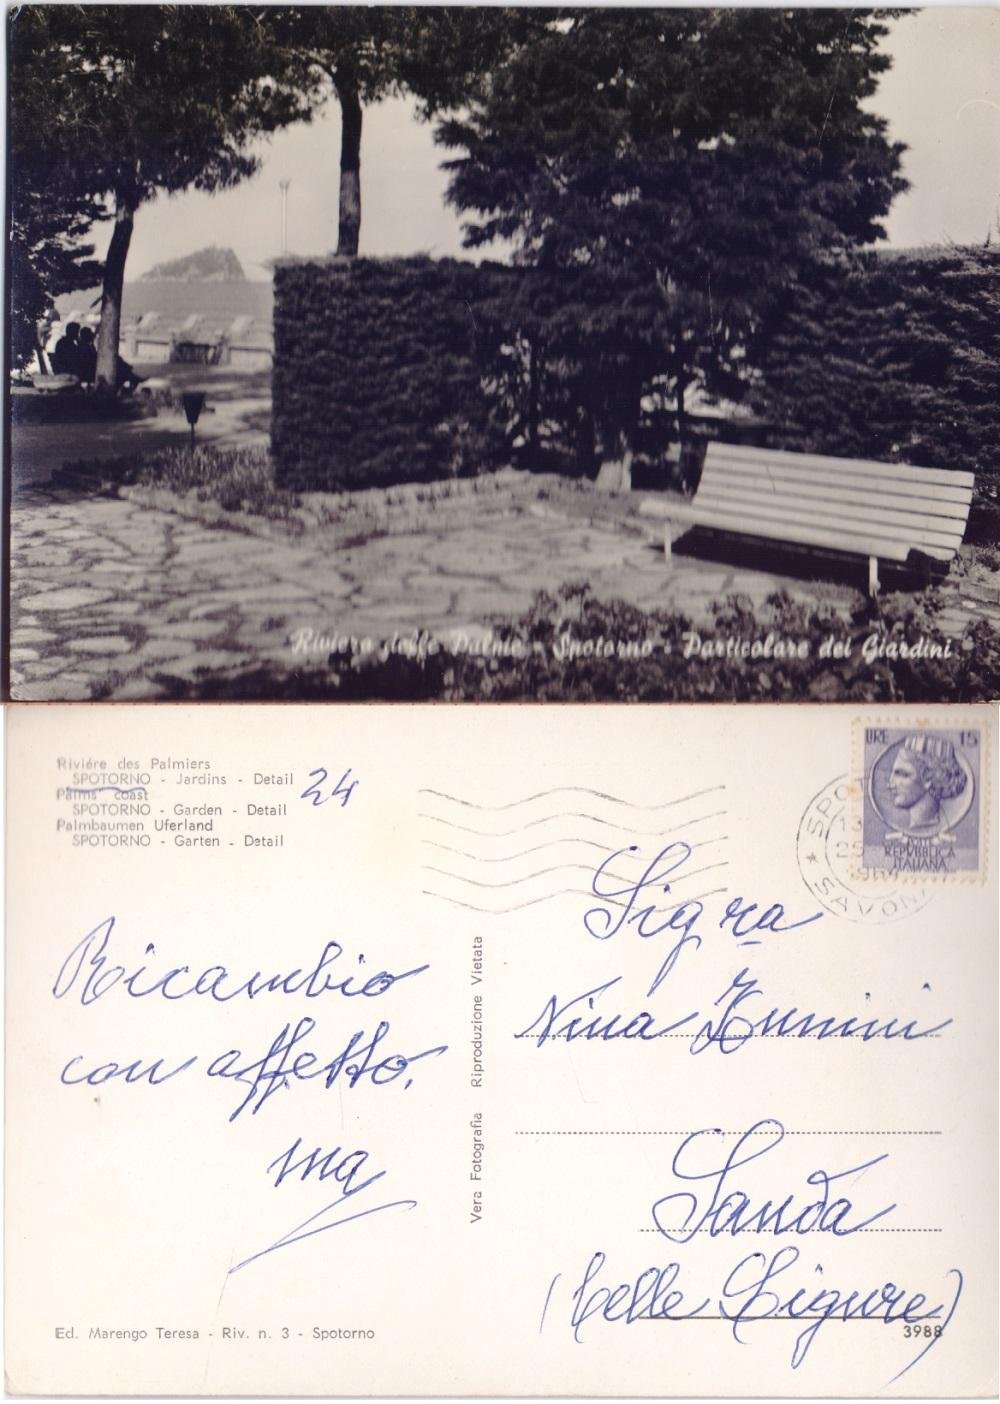 Riviera delle Palme - Spotorno - Particolare dei Giardini
Riviére des Palmiers
SPOTORNO - Jardins - Detail
Palms coast
SPOTORNO - Garden - Detail
Palmbaumen Uferland
SPOTORNO - Garten - Detail
24
LIRE 15
POSTE
REPVBBLICA
ITALIANA
SPOT
SAVONA
Ricambio
con affetto.
Sigra
Nina Zunini
Sanda
(Celle Ligure)
Vera Fotografia Riproduzione Vietata
Ed. Marengo Teresa - Riv. n. 3 - Spotorno
3988